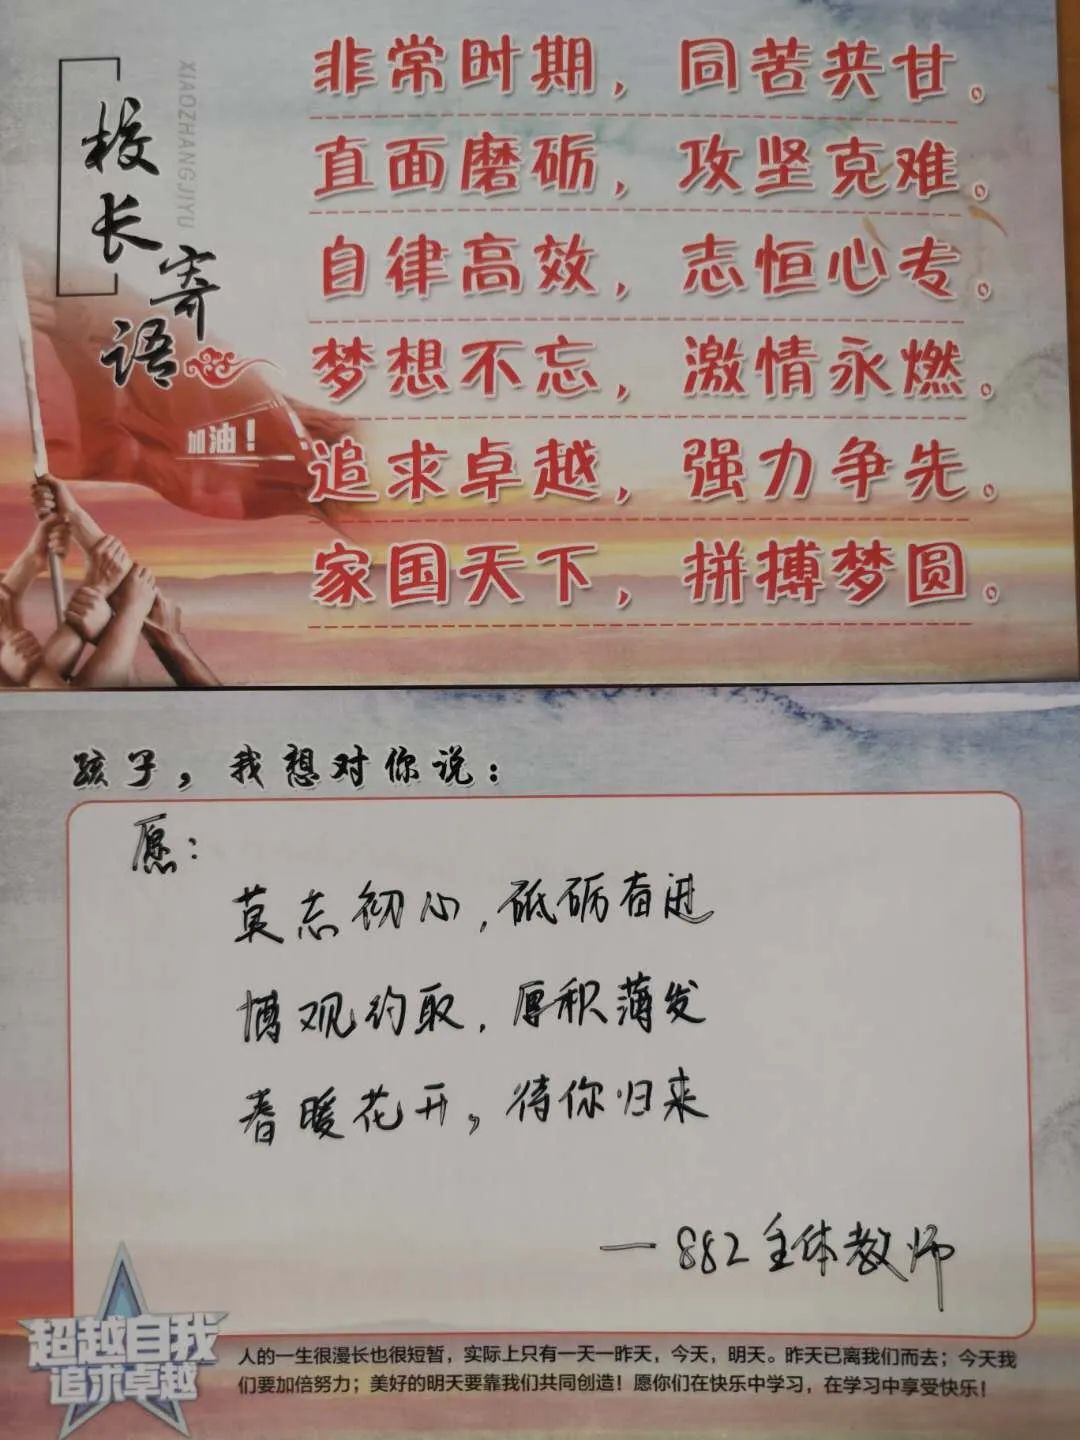 校长寄语
XIAOZHANGJIYU
加油！
非常时期，同苦共甘。
直面磨砺，攻坚克难。
自律高效，志恒心专。
梦想不忘，激情永燃。
追求卓越，强力争先。
家国天下，拼搏梦圆。
孩子，我想对你说：
愿：
莫忘初心，砥砺奋进
博观约取，厚积薄发
春暖花开，待你归来
—882全体教师
超越自我
追求卓越
人的一生很漫长也很短暂，实际上只有一天—昨天，今天，明天。昨天已离我们而去；今天我
们要加倍努力；美好的明天要靠我们共同创造！愿你们在快乐中学习，在学习中享受快乐！